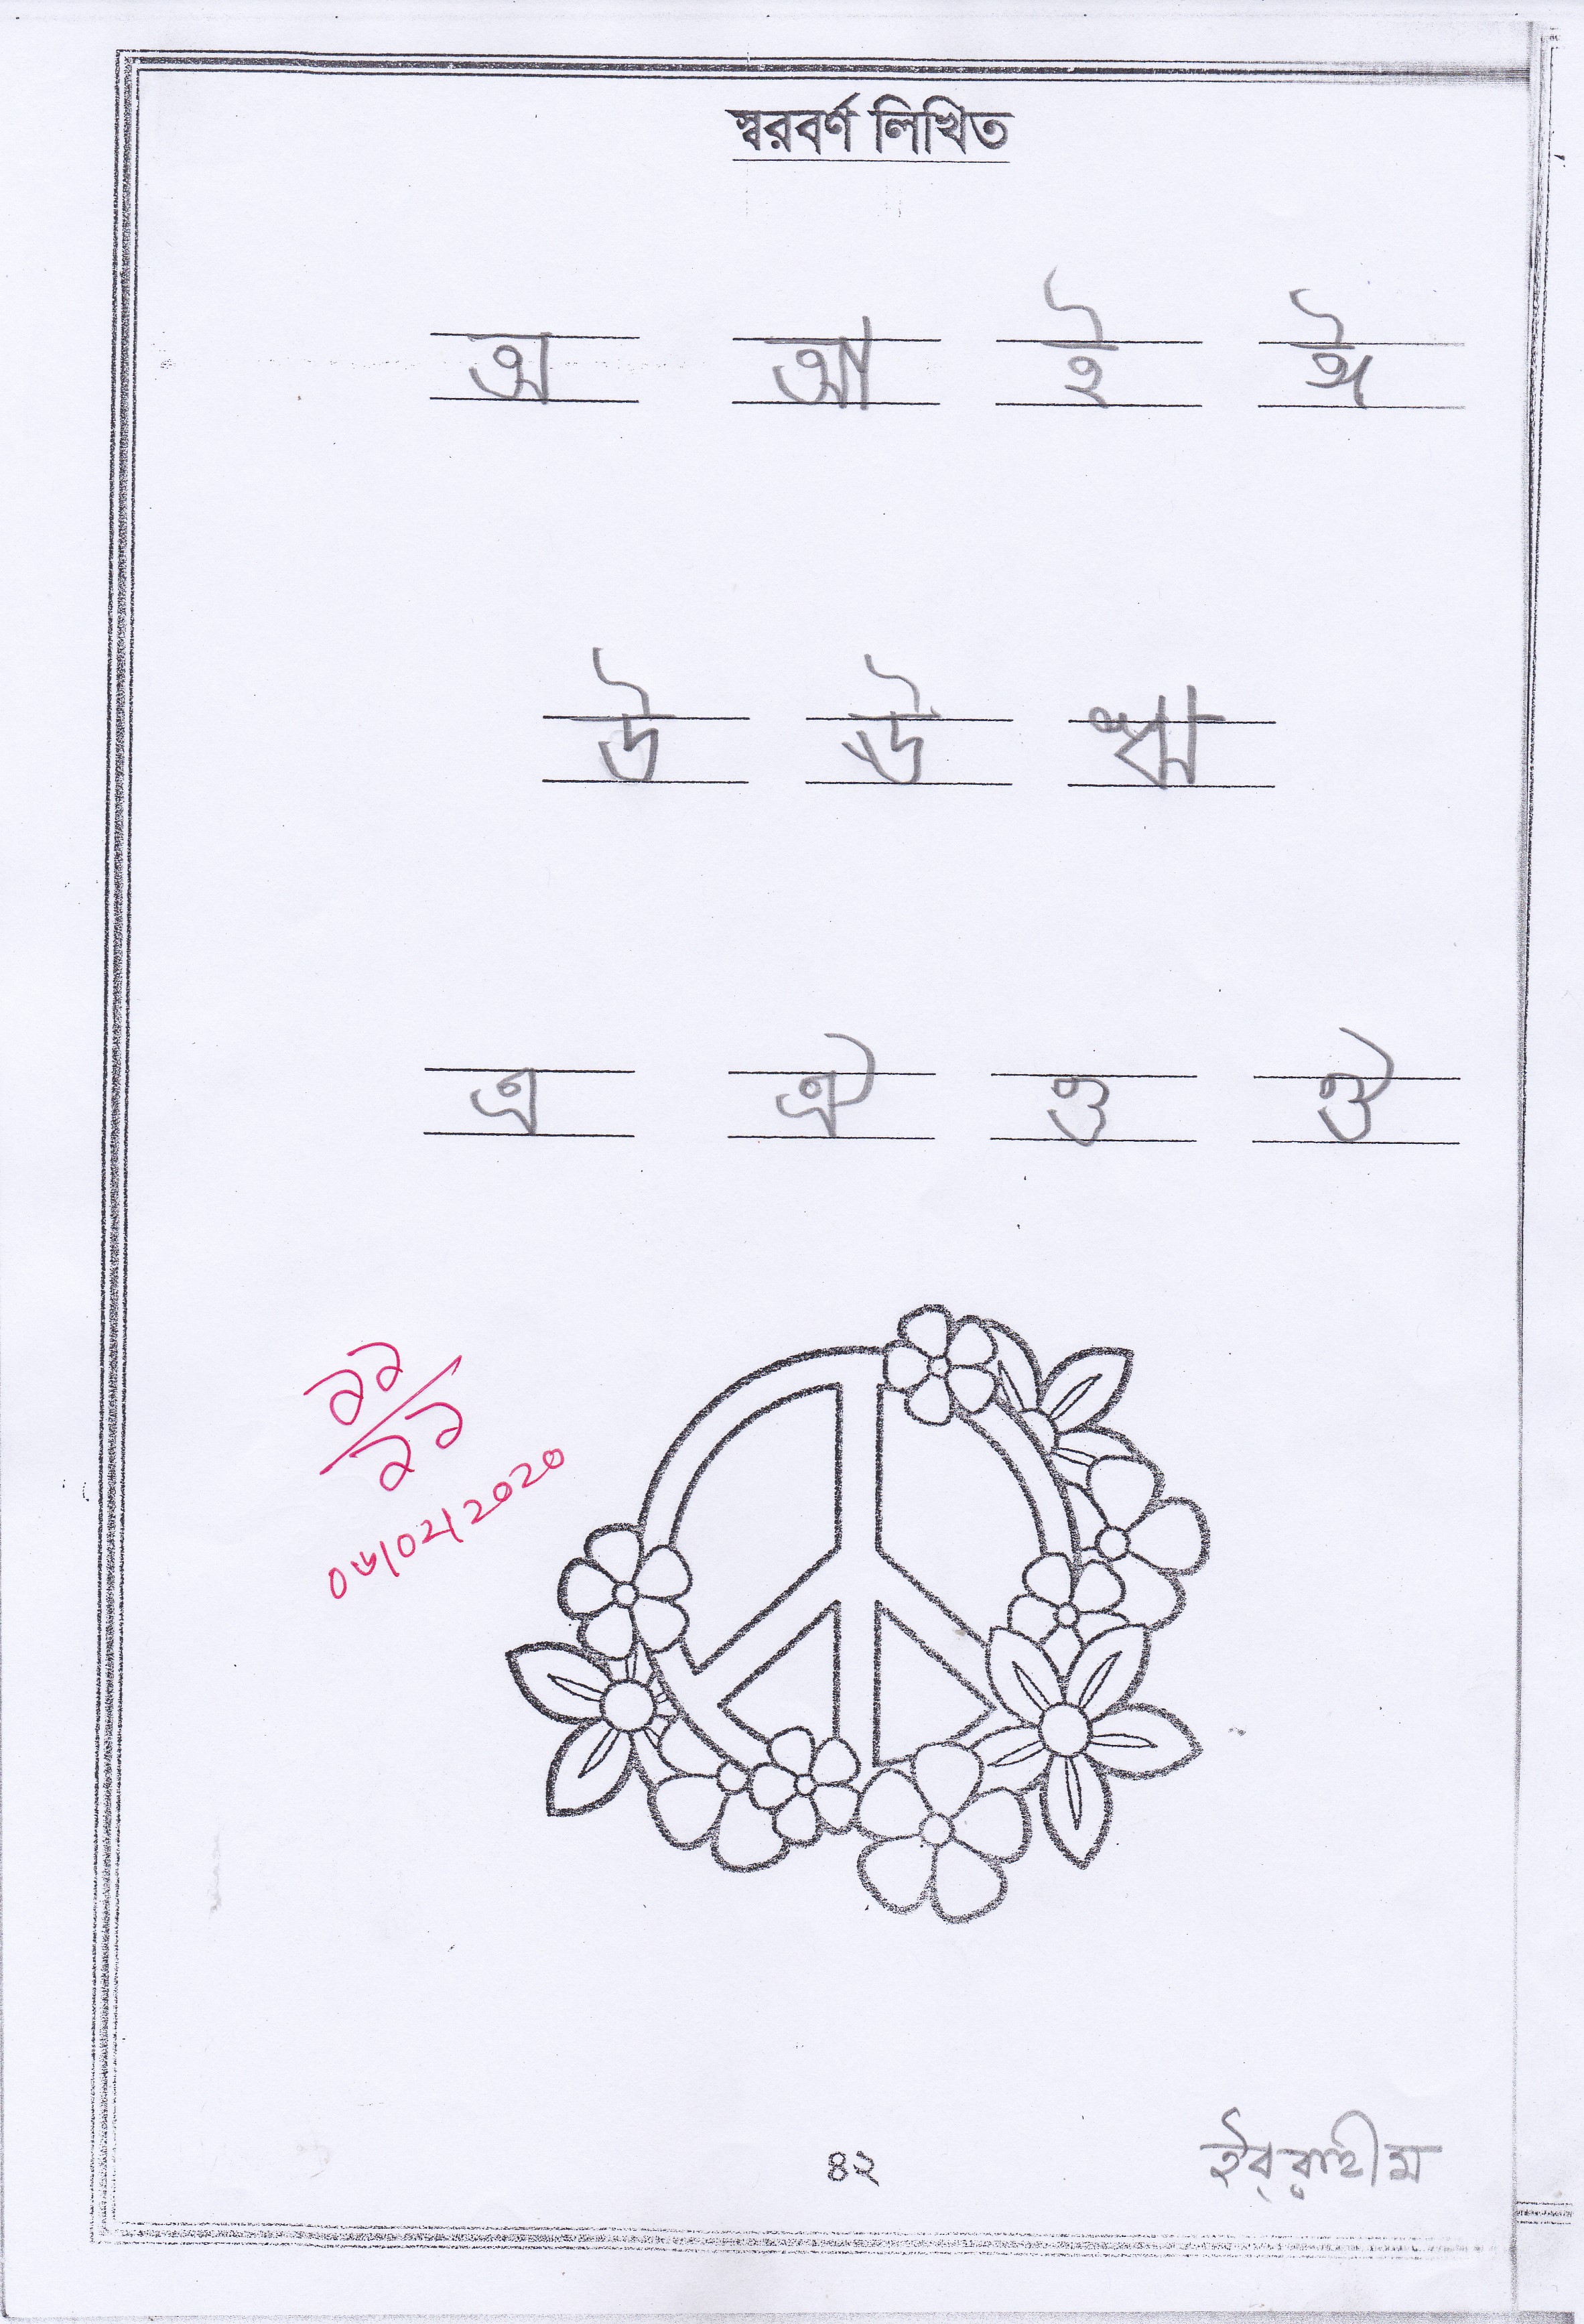 স্বরবর্ণ লিখিত
অ আ ই ঈ
উ ঊ ঋ
এ ঐ ও ঔ
১১
১১
০৬/০২/২০২০
৪২
ইব্রাহীম